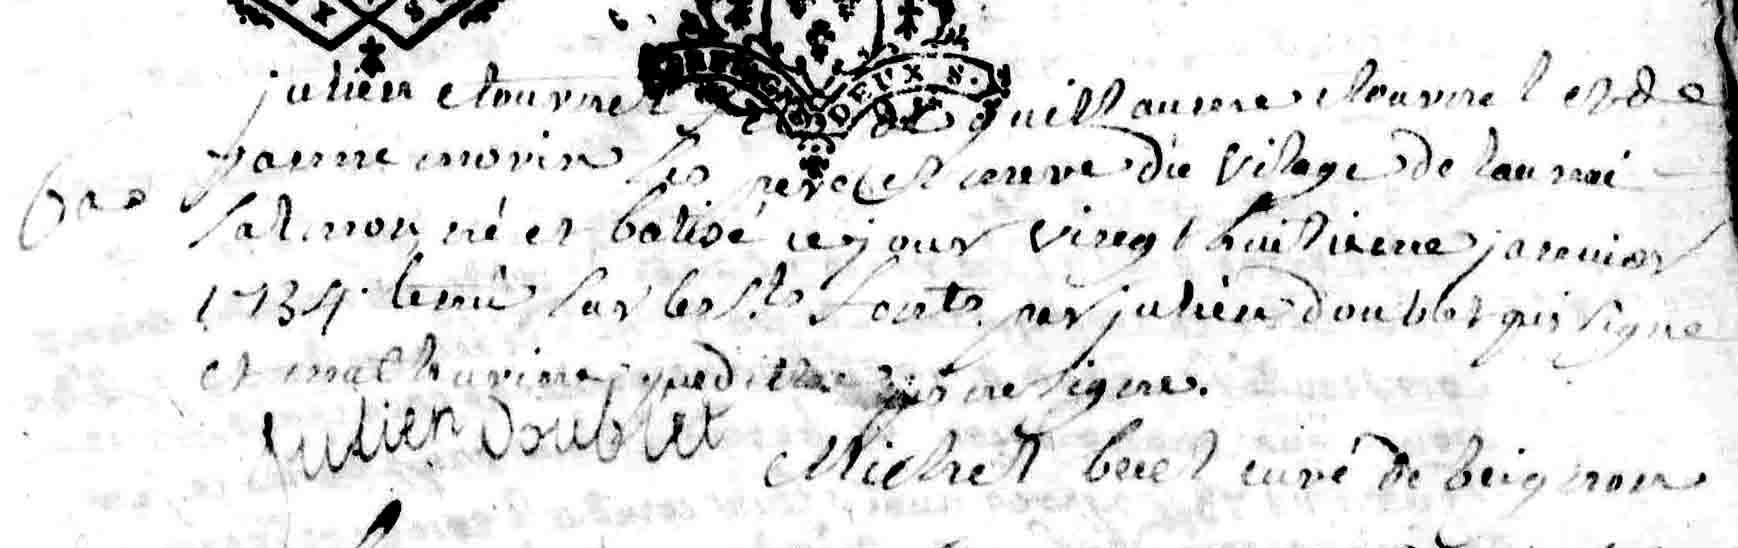 DEUX S.
julien etournel de guillaume etournel et de
janne morin ses pere et mere du vilage de launai
salmon né et batisé ce jour vingt huitieme janvier
1734 tenu sur les sts fonts par julien doublet qui signe
et mathurine qui ne signe.
julien doublet
Michel curé de beignon